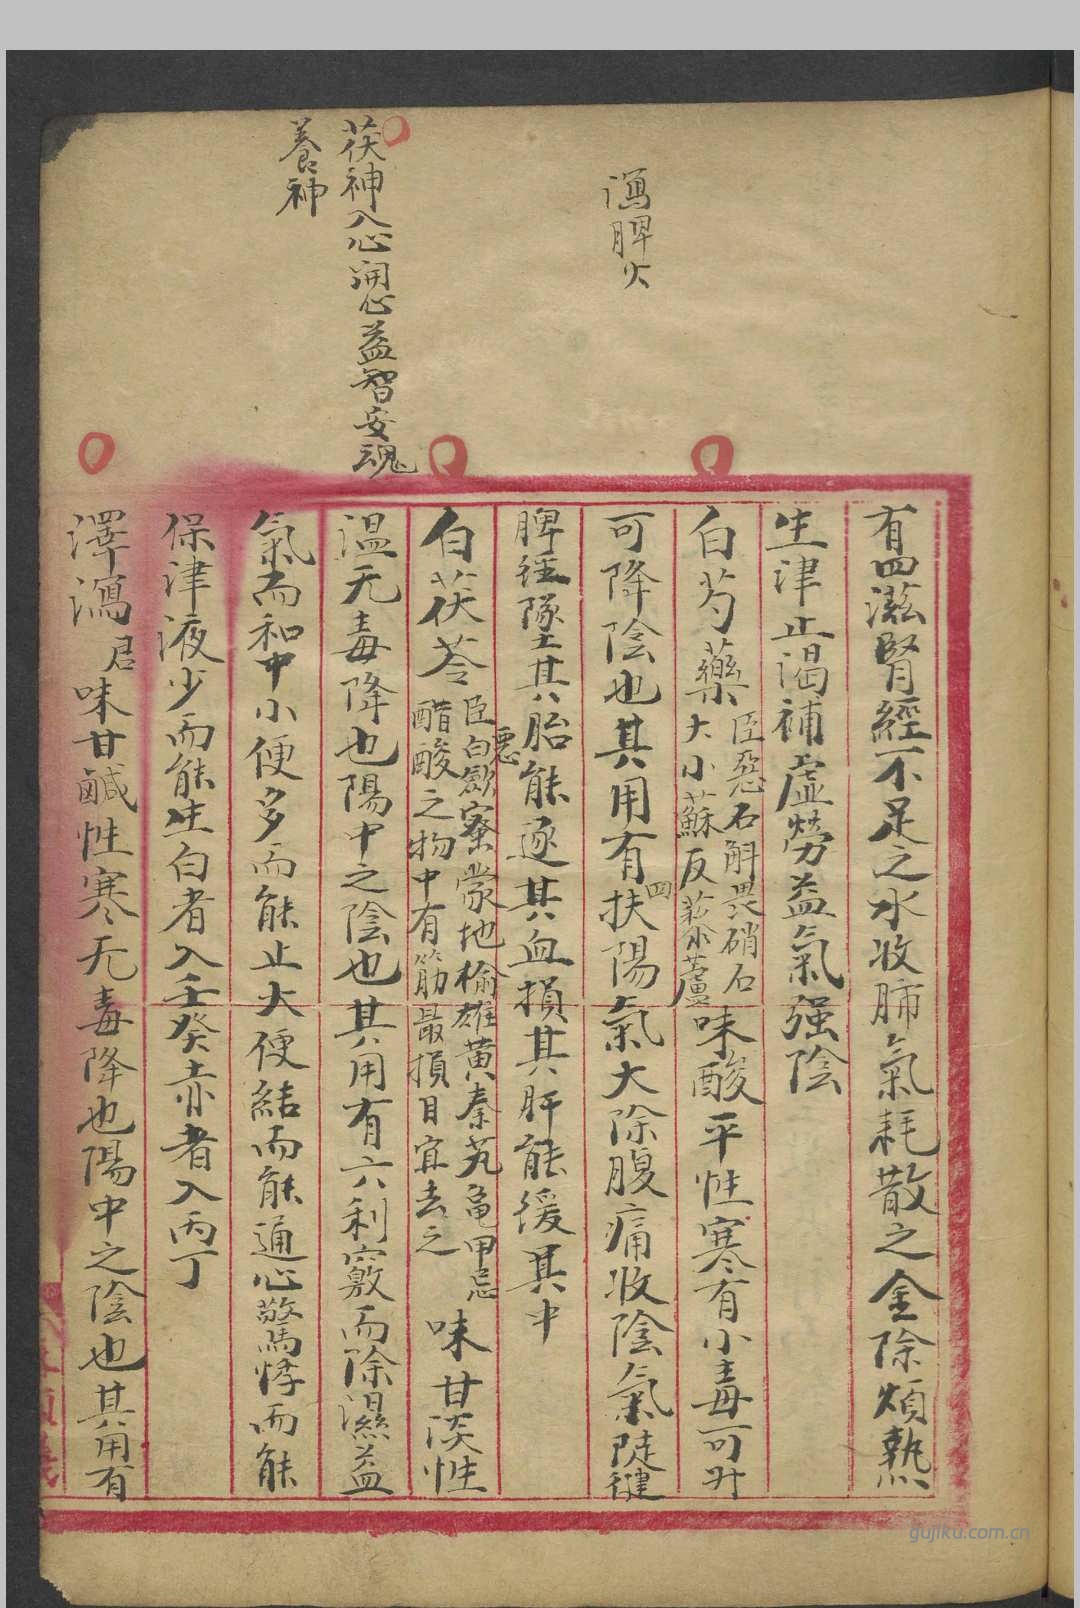 瀉脾火
茯神入心開心益智安魂
養神
有四滋腎經不足之水收肺氣耗散之金除煩熱
生津止渴補虛勞益氣强陰
白芍藥臣惡石斛畏硝石大小薊反藜蘆味酸平性寒有小毒可升
可降陰也其用有四扶陽氣大除腹痛收陰氣陡健
脾經墜其胎能逐其血損其肝能緩其中
白茯苓臣惡白蘞蒙地榆雄黃秦艽龜甲忌醋酸之物中有筋最損目宜去之味甘淡性
溫无毒降也陽中之陰也其用有六利竅而除濕益
氣而和中小便多而能止大便結而能通心驚悸而能
保津液少而能生白者入壬癸赤者入丙丁
澤瀉君味甘鹹性寒无毒降也陽中之陰也其用有
gujiku.com.cn